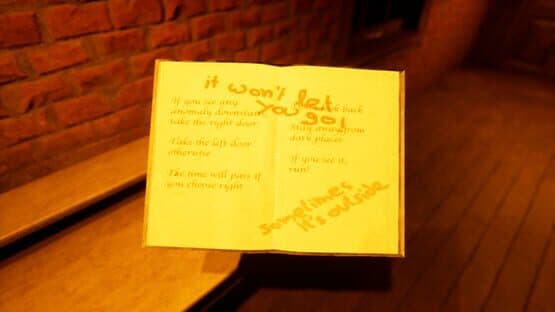 it won't let
you go!
If you see any
anomaly downstairs
take the right door
Take the left door
otherwise
The time will pass if
you choose right
back
Stay away from
dark places
If you see it,
run!
sometimes
it's outside